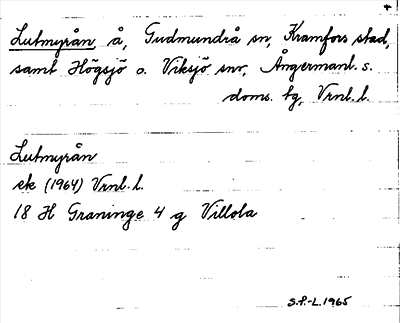 Lutmyrån, å, Gudmundrå sn, Kramfors stad,
samt Högsjö o. Viksjö snr, Ångermanl. s.
doms. tg, Vrnl. l.
Lutmyrån
ek (1964) Vrnl. l.
18 H Graninge 4 g Villola
S.P.-L. 1965